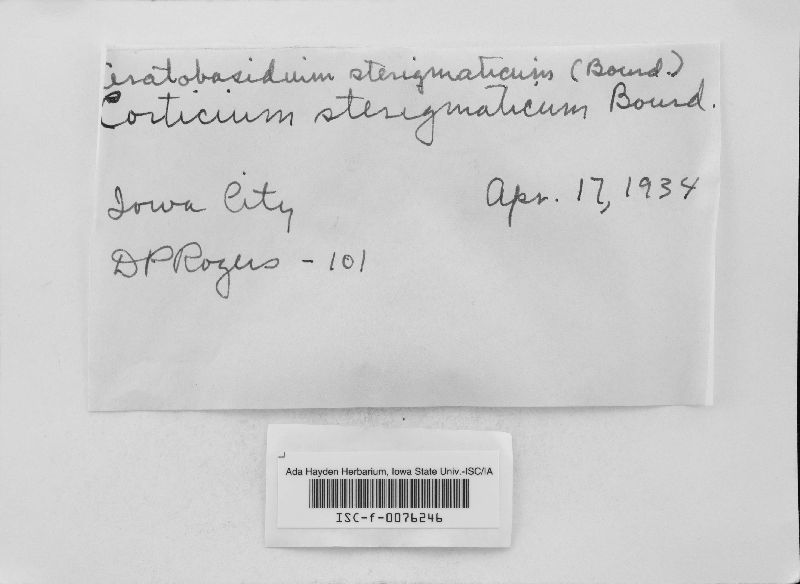 eratobasidium sterigmaticum (Bourd.)
Corticium sterigmaticum Bourd.
Iowa City Apr. 17, 1934
DPRogers - 101
Ada Hayden Herbarium, Iowa State Univ.-ISC/IA
ISC-f-0076246